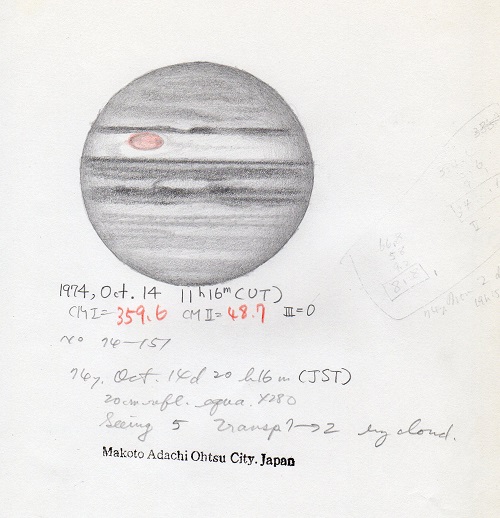 1974, Oct. 14 11h16m (UT)
CM I= 359.6 CM II= 48.7 III=0
No 74-151
74y. Oct. 14d 20h16m (JST)
20cm refl. equa. ×280
Seeing 5 Transp 1→2 by cloud.
Makoto Adachi Ohtsu City. Japan
II